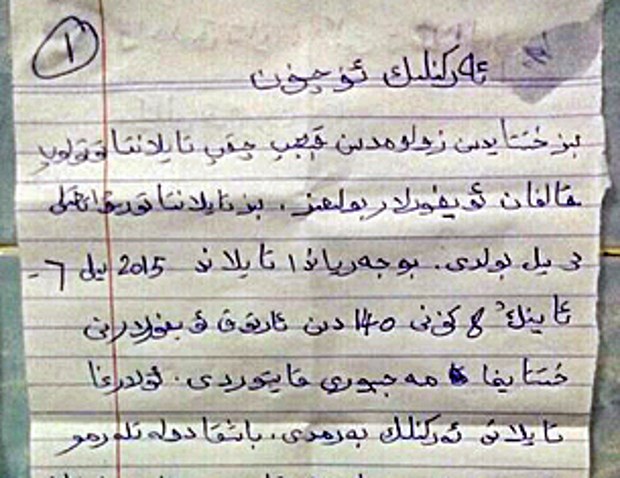 1
ئەركىنلىك ئۈچۈن
بىز خىتايدىن زۇلۇمدىن قېچىپ چىقىپ تايلانتتا تۇتۇلۇپ
قالغان ئۇيغۇرلار بولىمىز. بىز تايلانتتا
يىل بولدى. بۇ جەرياندا تايلاند 2015 يىل 7-
ئاينىڭ 8 كۈنى 140 دىن ئارتۇق ئۇيغۇرلارنى
خىتايغا مەجبۇرى قايتۇردى. ئۇلارغا
تايلاند ئەركىنلىك بەرمىدى، باشقا دۆلەتلەرمۇ